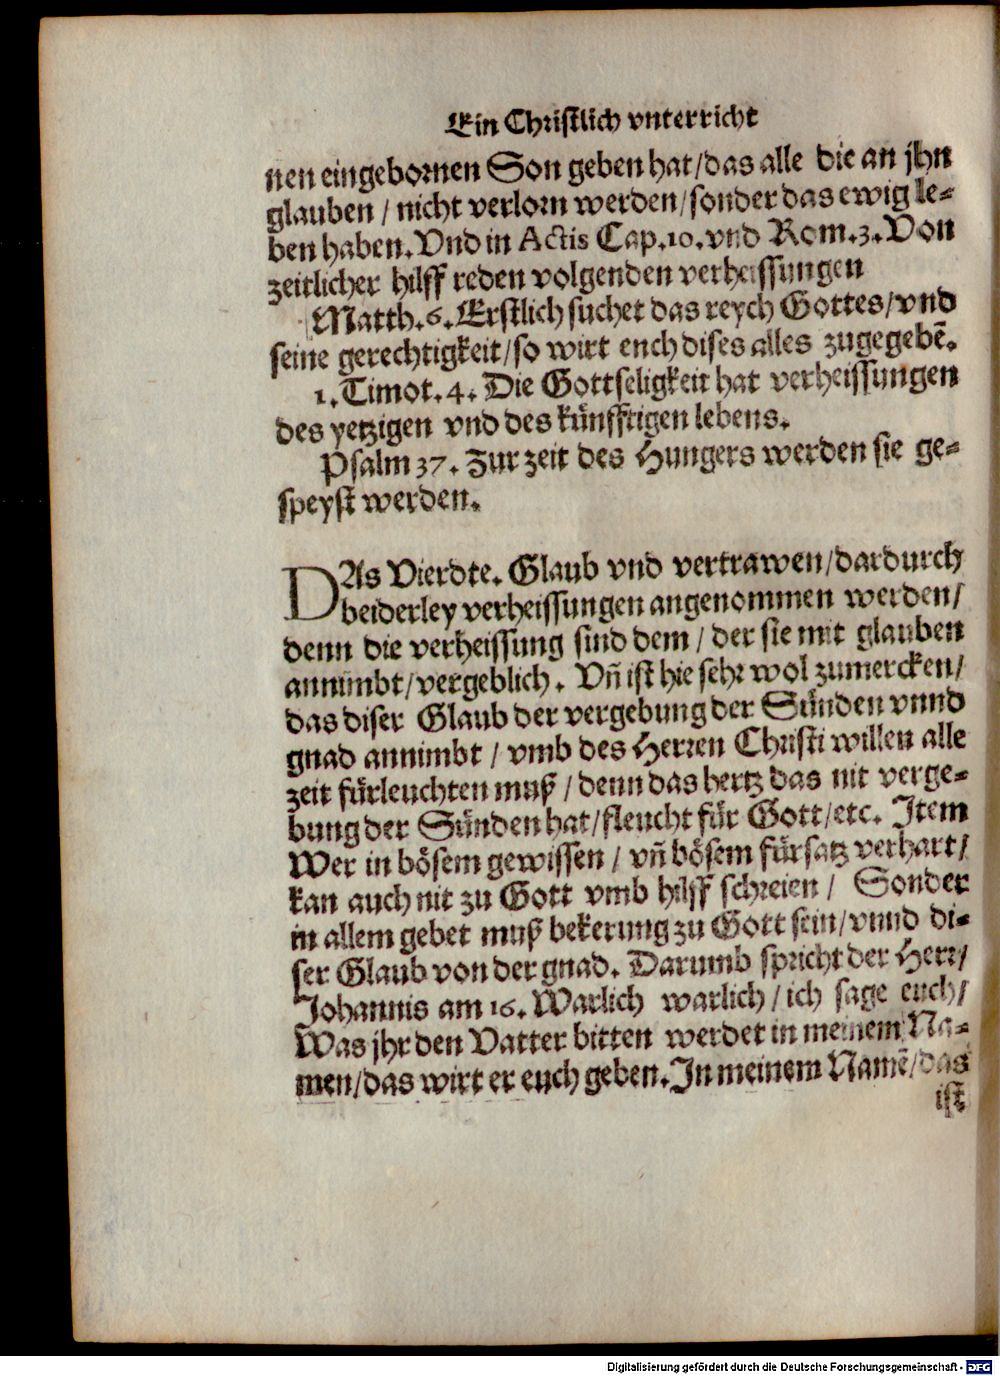 Ein Christlich vnterricht
nen eingebornen Son geben hat/das alle die an jhn
glauben / nicht verlorn werden/sonder das ewig le-
ben haben. Vnd in Actis Cap.10.vnd Rom.3. Von
zeitlicher hilff reden volgenden verheissungen
Matth.6. Erstlich suchet das reych Gottes/vnd
seine gerechtigkeit/so wirt ench dises alles zugegebē.
1. Timot. 4. Die Gottseligkeit hat verheissungen
des yetzigen vnd des künfftigen lebens.
Psalm 37. Zur zeit des Hungers werden sie ge-
speyst werden.
DAs Vierdte. Glaub vnd vertrawen/dardurch
beiderley verheissungen angenommen werden/
denn die verheissung sind dem / der sie mit glauben
annimbt/vergeblich. Vñ ist hie sehr wol zumercken/
das diser Glaub der vergebung der Sünden vnnd
gnad annimbt / vmb des Herren Christi willen alle
zeit fürleuchten muß / denn das hertz das nit verge-
bung der Sünden hat/fleucht für Gott/etc. Item
Wer in bösem gewissen / vñ bösem fürsatz verhart/
kan auch nit zu Gott vmb hilff schreien / Sonder
in allem gebet muß bekerung zu Gott sein/vnnd di-
ser Glaub von der gnad. Darumb spricht der Herr/
Johannis am 16. Warlich warlich / ich sage euch/
Was jhr den Vatter bitten werdet in meinem Na-
men/das wirt er euch geben. In meinem Namē/das
ist
Digitalisierung gefördert durch die Deutsche Forschungsgemeinschaft - DFG